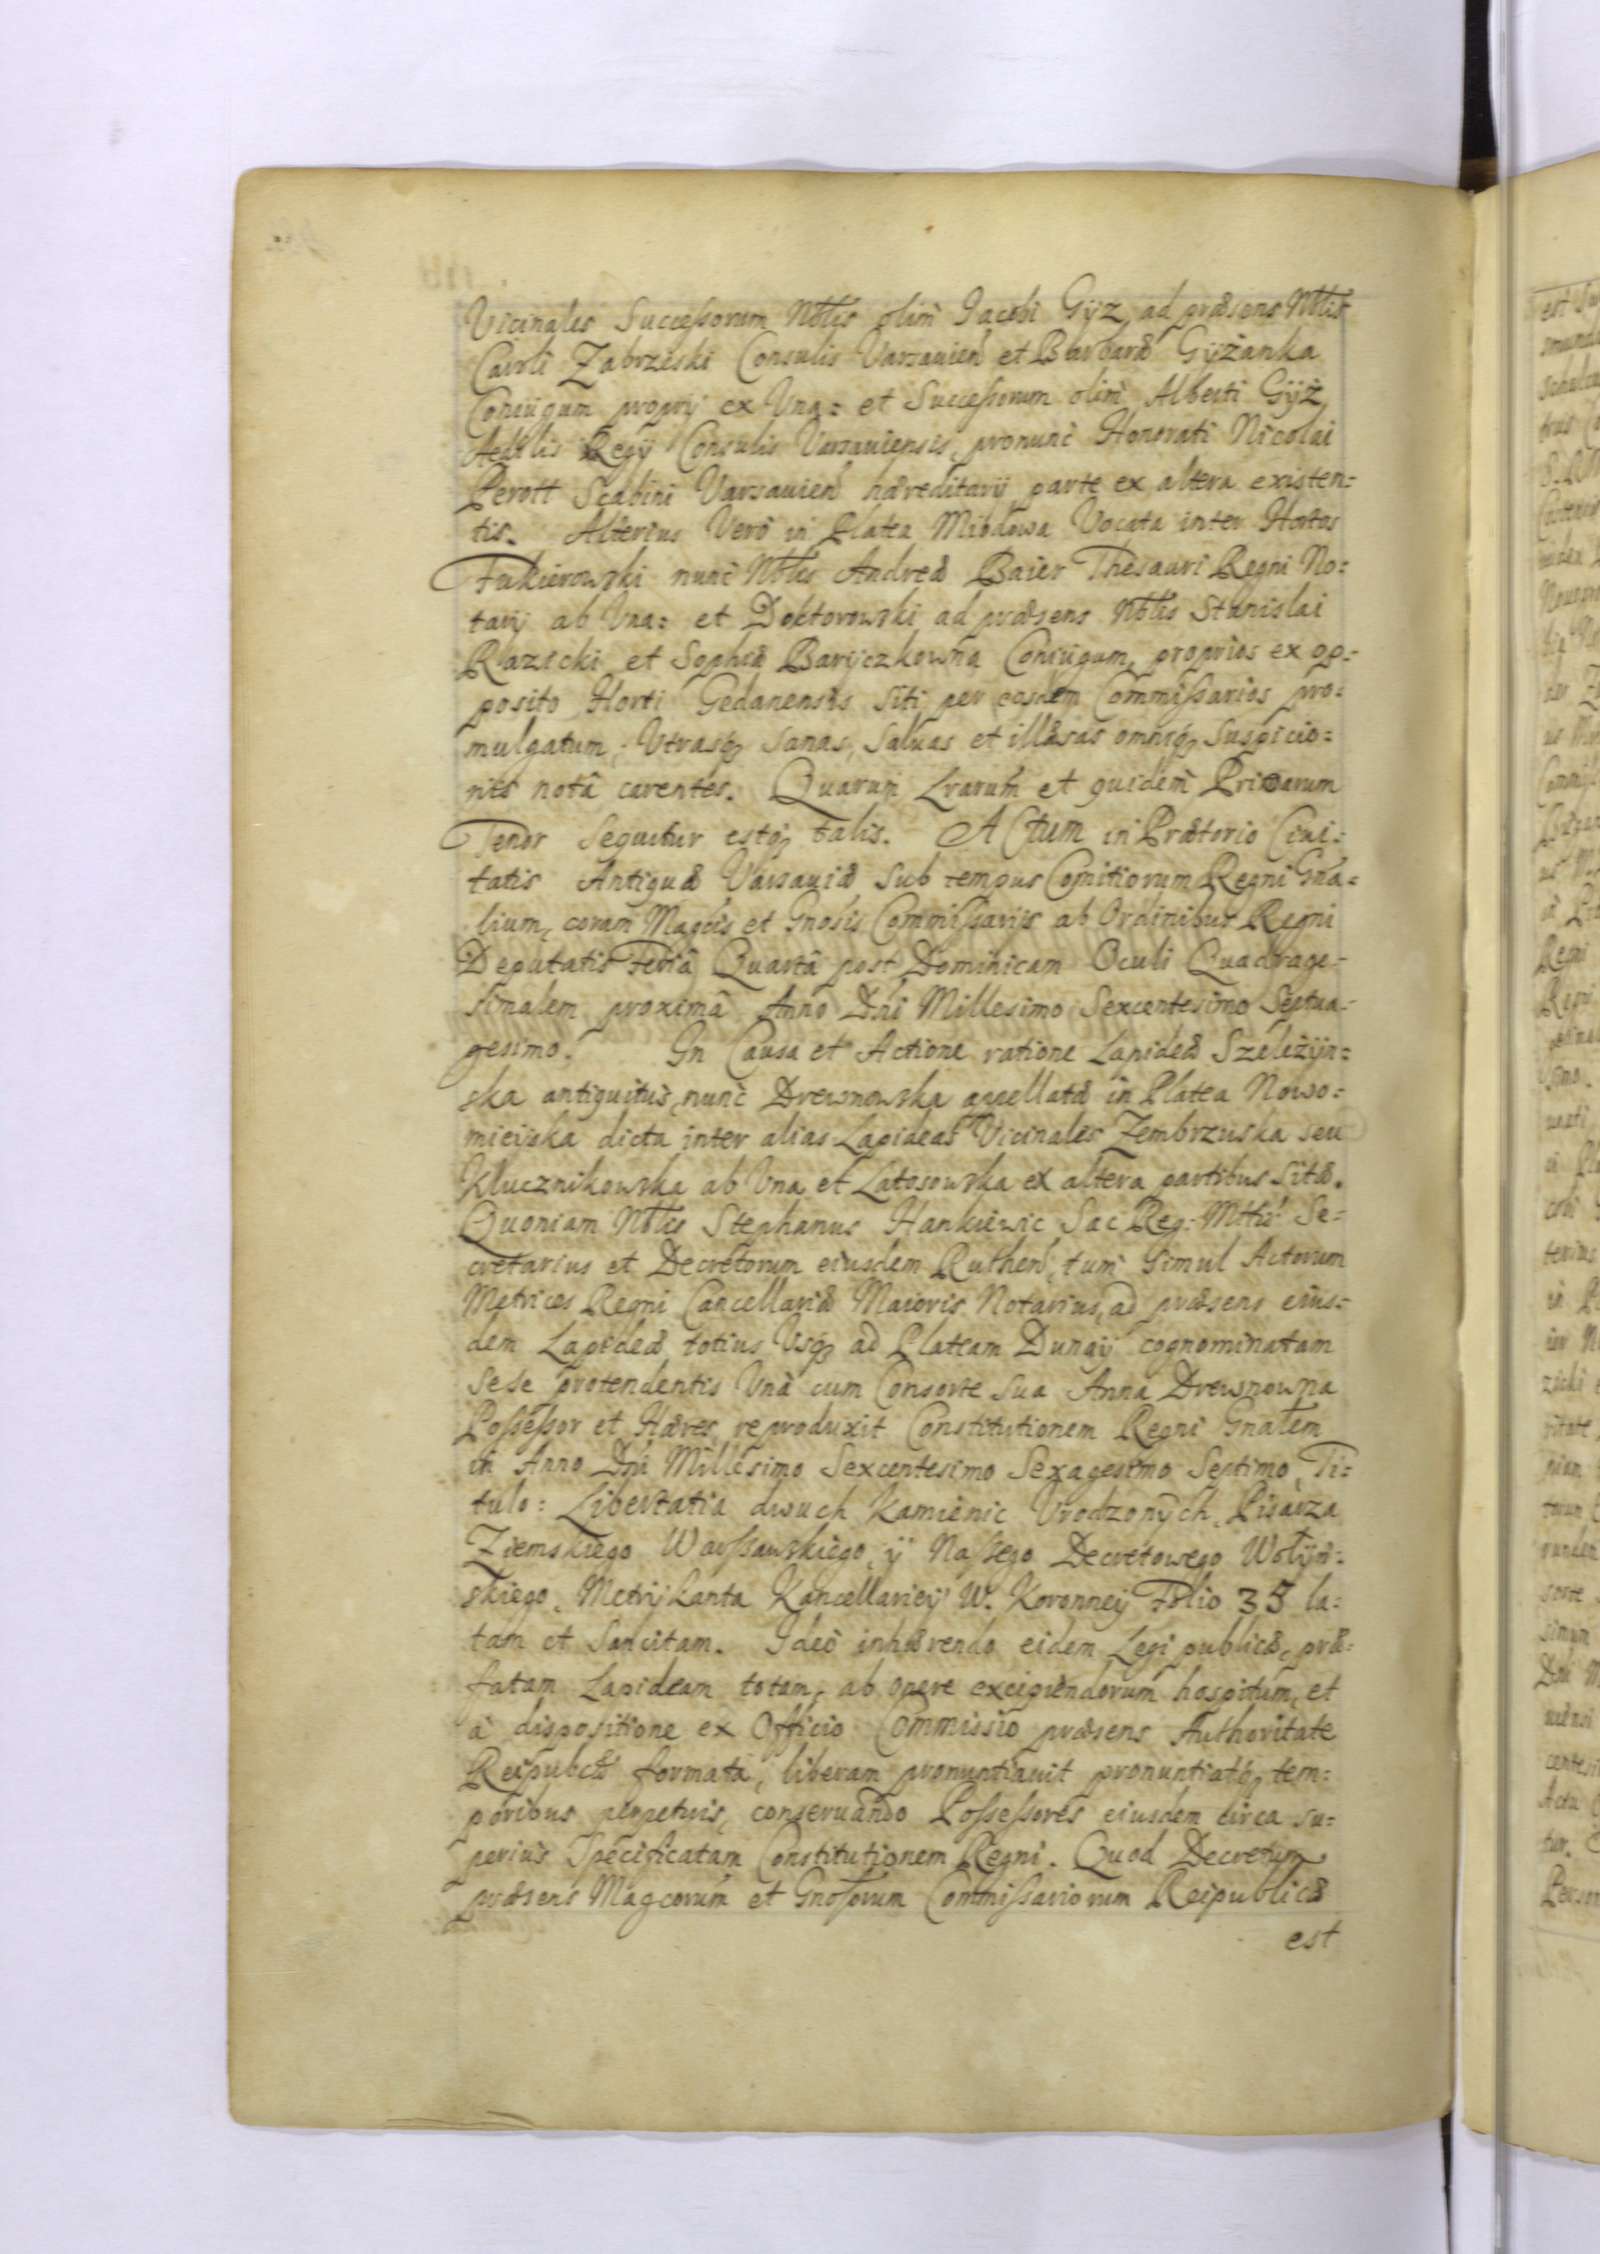 Vicinales Successorum Nobłis olim̃ Jacobi Gÿz ad præsens Nobłis
Caroli Zabrzeski Consulis Varsauien̄ et Barbaræ Gÿżanka
Coniugum proprÿ ex Vna: et Successorum olim̃ Alberti Gÿż
Aedilis Regÿ Consulis Varsauiensis, pronunc Honorati Nicolai
Perott Scabini Varsauien̄ hæreditarÿ parte ex altera existen:
tis. Alterius Verò in Platea Miodowa Vocata inter Hortos
Fukierowski nunc Nobłis Andreæ Baier Thesauri Regni No:
tarÿ ab Vna: et Doktorowski ad præsens Nobłis Stanislai
Razicki et Sophiæ Barÿczkowna Coniugum, proprios ex op:
posito Horti Gedanensis Siti per eosdem Commissarios pro:
mulgatum, Vtrasq; Sanas, Saluas et illæsas omniq; Suspicio:
nis notâ carentes. Quarum Lrarum̃ et quidem̃ Primarum
Tenor Sequitur estq; talis. ACtum in Prætorio Ciui:
tatis Antiquæ Varsauiæ Sub tempus Comitiorum Regni Gña:
lium, coram Magcis et Gnosis Commissariis ab Ordinibus Regni
Deputatis Feriâ Quartâ post Dominicam Oculi Quadrage:
simalem proximâ Anno Dn̄i Millesimo Sexcentesimo Septua:
gesimo. In Causa et Actione ratione Lapideæ Szeleżÿn:
ska antiquitùs, nunc Drewnowska apellatæ in Platea Nowo:
mieÿska dicta inter alias Lapideas Vicinales Zembrzuska seu
Klucznikowska ab Vna et Latosowska ex altera partibus Sitæ.
Quoniam Nobłis Stephanus Hankiewic Sac Reg: Mttis Se:
cretarius et Decretorum eiusdem Ruthen̄, tum Simul Actorum
Metrices Regni Cancellariæ Maioris Notarius, ad præsens eius:
dem Lapideæ totius Vsq; ad Plateam Dunaÿ cognominatam
Sese protendentis Vnà cum Consorte Sua Anna Drewnowna
Possessor et Hæres, reproduxit Constitutionem Regni Gnalem
in Anno Dn̄i Millesimo Sexcentesimo Sexagesimo Septimo Ti:
tulo: Libertatia dwuch Kamienic Vrodzonÿch, Pisarza
Ziemskiego Warssawskiego, ÿ Nassego Decretowego Wolÿn:
skiego, Metrÿkanta Kancellarieÿ W. Koronneÿ Folio 35 la:
tam et Sancitam. Ideò inhærendo eidem Legi publicæ, præ:
fatam Lapideam totam, ab onere excipiendorum hospitum, et
à dispositione ex Officio Commissio præsens Authoritate
Reipubcæ formata, liberam pronuntiauit pronuntiatq; tem:
poribus perpetuis, conseruando Possessores eiusdem circa su:
periùs Specificatam Constitutionem Regni. Quod Decretum
præsens Magcorum̃ et Gnosorum Commissariorum Reipublicæ
est